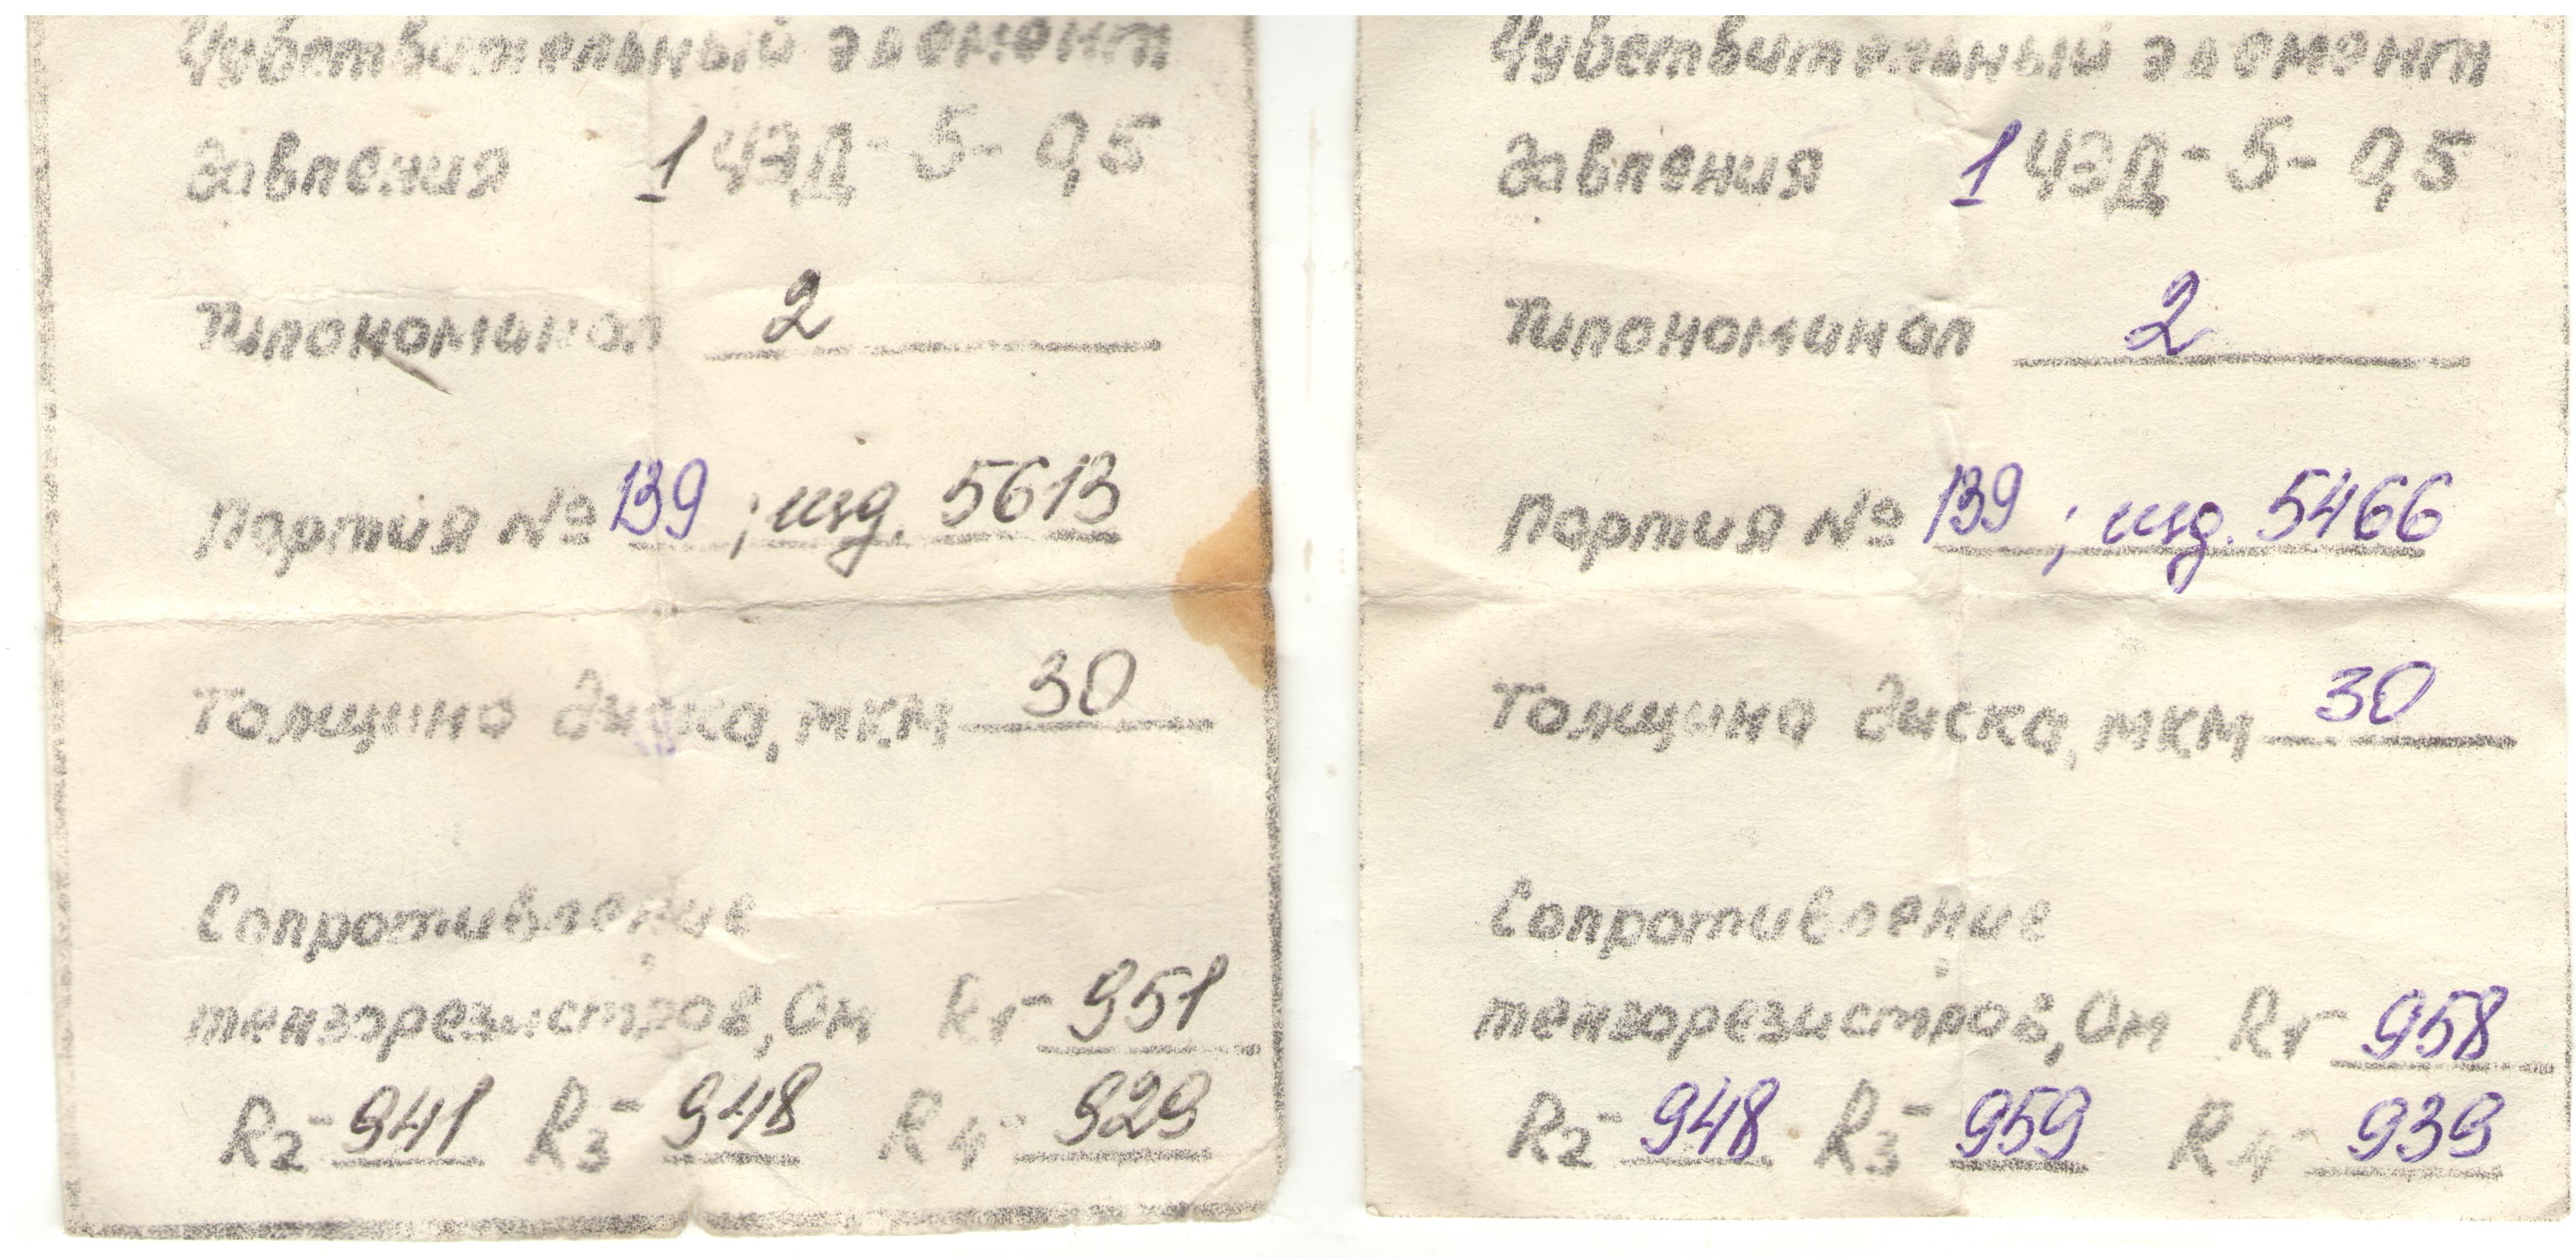 Чувствительный элемент
давления 1 ЧЭД - 5 - 0,5
Типономинал 2
Партия № 139 ; изд. 5613
Толщина диска, мкм 30
Сопротивление
тензорезистров, Ом R1 - 951
R2 - 941 R3 - 948 R4 - 929
Чувствительный элемент
давления 1 ЧЭД - 5 - 0,5
Типономинал 2
Партия № 139 ; изд. 5466
Толщина диска, мкм 30
Сопротивление
тензорезистров, Ом R1 - 958
R2 - 948 R3 - 959 R4 - 939